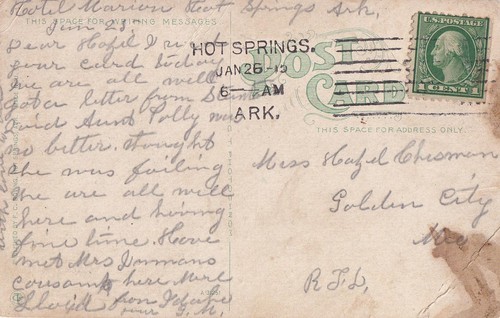 Hotel Marion Hot Springs Ark,
THIS SPACE FOR WRITING MESSAGES
Jan 25.
Dear Hazel I rec'd
your card today
we are all well
Got a letter from
said Aunt Polly was
no better. thought
she was failing
We are all well
here and having
fine time. Have
met Mrs
here Mrs
from Idaho
HOT SPRINGS.
JAN 26
AM
ARK.
POST
CARD
THIS SPACE FOR ADDRESS ONLY.
U.S. POSTAGE
1 CENT 1
Miss Hazel Chesman
Golden City
Mo
R.F.D.